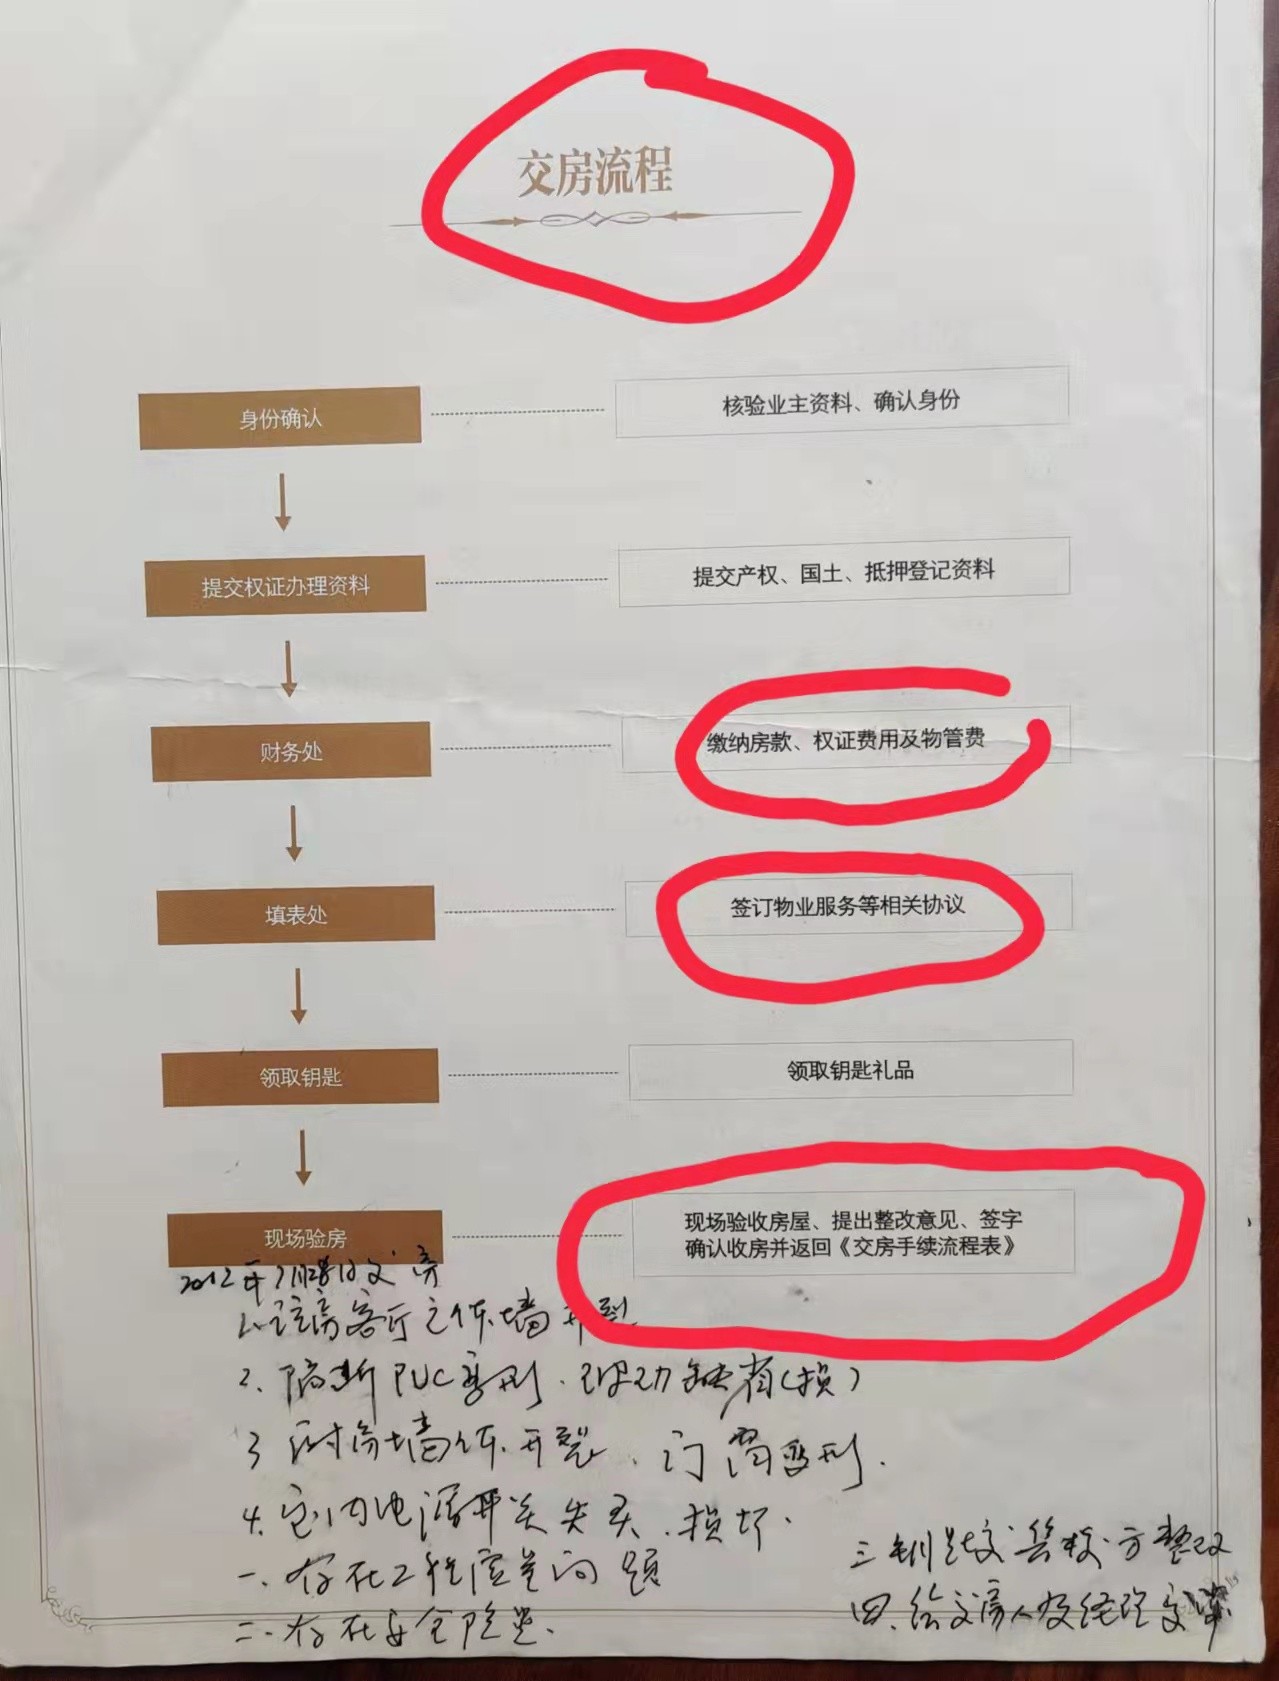 交房流程
身份确认
核验业主资料、确认身份
提交权证办理资料
提交产权、国土、抵押登记资料
财务处
缴纳房款、权证费用及物管费
填表处
签订物业服务等相关协议
领取钥匙
领取钥匙礼品
现场验房
现场验收房屋、提出整改意见、签字
确认收房并返回《交房手续流程表》
2012年7月28日交房
1. 该房客厅之体墙开裂
2. 隔断PVC变形、缺省(损)
3 厨房墙体开裂、门窗变形.
4. 室内电源开关失灵、损坏.
一、存在工程质量问题
二、存在安全隐患.
三 钥匙交 方整改
四 给交房人及经理交谈